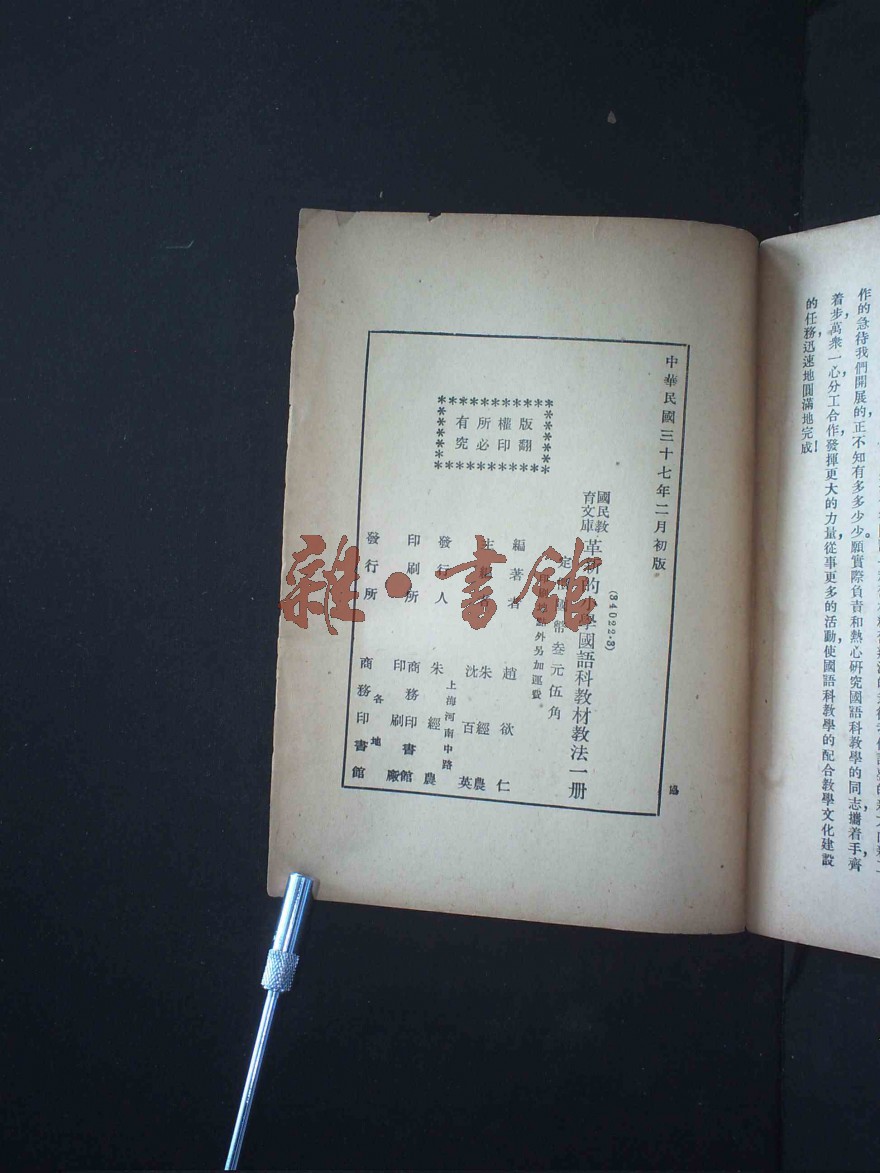 作的急待我們開展的,正不知有多多少少。願實際負責和熱心研究國語科教學的同志,攜着手,齊
着步,萬衆一心,分工合作,發揮更大的力量,從事更多的活動,使國語科教學的配合教學文化建設
的任務,迅速地圓滿地完成!
中華民國三十七年二月初版。
版權所有
翻印必究
(34022·3)
國民教育文庫
革新的小學國語科教材教法一册
定價國幣叁元伍角
外另加運費。
編著者 趙欲仁
主編者 朱經農 沈百英
發行人 朱經農
上海河南中路
印刷所 商務印書館印刷廠
發行所 商務印書館
各地
雜·書館